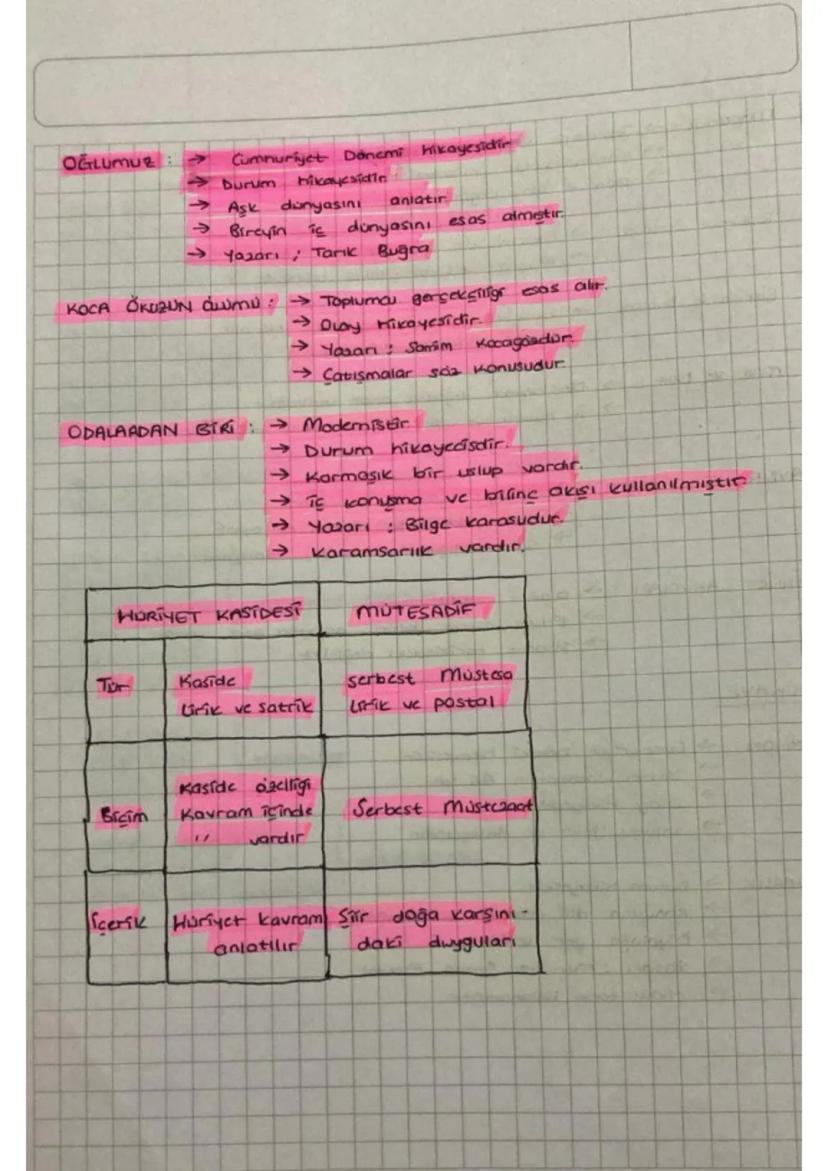 OĞLUMUZ : → Cumhuriyet Dönemi hikayesidir
→ Durum hikayesidir.
→ Aşk dünyasını anlatır
→ Bireyin iç dünyasını esas almıştır.
→ Yazarı : Tarık Buğra
KOCA ÖKÜZÜN ÖLÜMÜ : → Toplumcu gerçekçiliği esas alır.
→ Olay hikayesidir.
→ Yazarı : Samim Kocagözdür.
→ Çatışmalar söz konusudur.
ODALARDAN BİRİ : → Modernisttir
→ Durum hikayecisdir.
→ Karmaşık bir uslup vardır.
→ İç konuşma ve bilinç akışı kullanılmıştır
→ Yazarı : Bilge karasudur.
→ Karamsarlık vardır.
HÜRİYET KASİDESİ MÜTESADİF
Tür Kaside serbest Müstesa
Lirik ve satrik Lirik ve postal
Kaside özelliği
Biçim Kavram içinde Serbest Müstezaat
'' vardır
İçerik Hüriyet kavram Şiir doğa karşını-
anlatılır daki duyguları